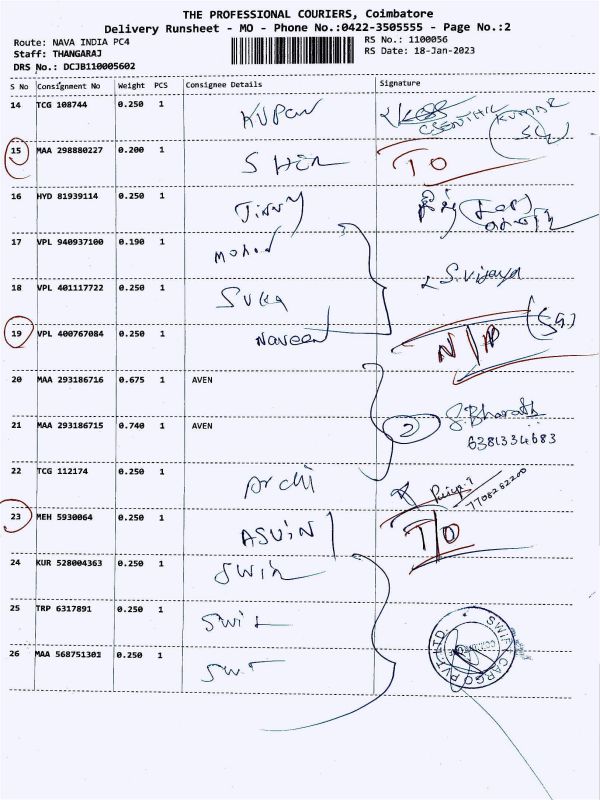 THE PROFESSIONAL COURIERS, Coimbatore
Delivery Runsheet - MO - Phone No.:0422-3505555 - Page No.:2
Route: NAVA INDIA PC4
RS No.: 1100056
Staff: THANGARAJ
RS Date: 18-Jan-2023
DRS No.: DCJB110005602
S No Consignment No Weight PCS Consignee Details Signature
14 TCG 108744 0.250 1 KUPAN
CSENTHIL KUMAR
15 MAA 298880227 0.200 1 TO
16 HYD 81939114 0.250 1
17 VPL 940937100 0.190 1
18 VPL 401117722 0.250 1 S.Vijaya
19 VPL 400767084 0.250 1 Naveen N/A
20 MAA 293186716 0.675 1 AVEN
21 MAA 293186715 0.740 1 AVEN 2 S.Bharath
6381334683
22 TCG 112174 0.250 1 Archi Priya.T
7708262200
23 MEH 5930064 0.250 1 ASUIN T/O
24 KUR 528004363 0.250 1
25 TRP 6317891 0.250 1
26 MAA 568751301 0.250 1
SWIFT CARGO PVT. LTD